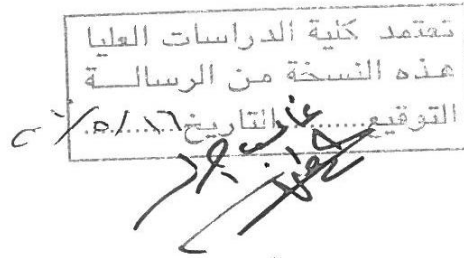 تعتمد كلية الدراسات العليا
هذه النسخة من الرسالــة
التوقيع.........التاريخ١٦/٥/